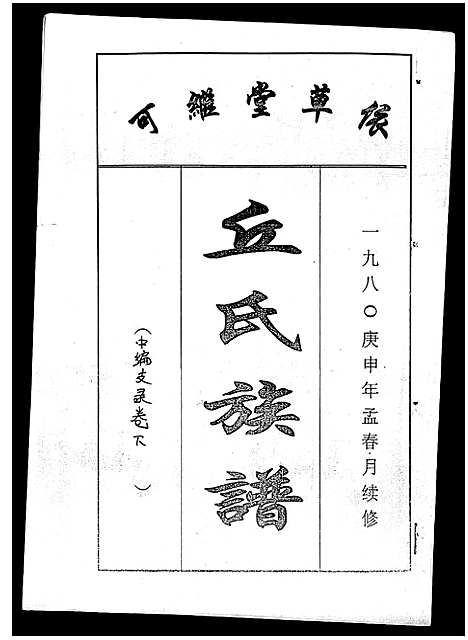 可繼堂草
一九八〇庚申年孟春月续修
丘氏族譜
(中编支录卷下)